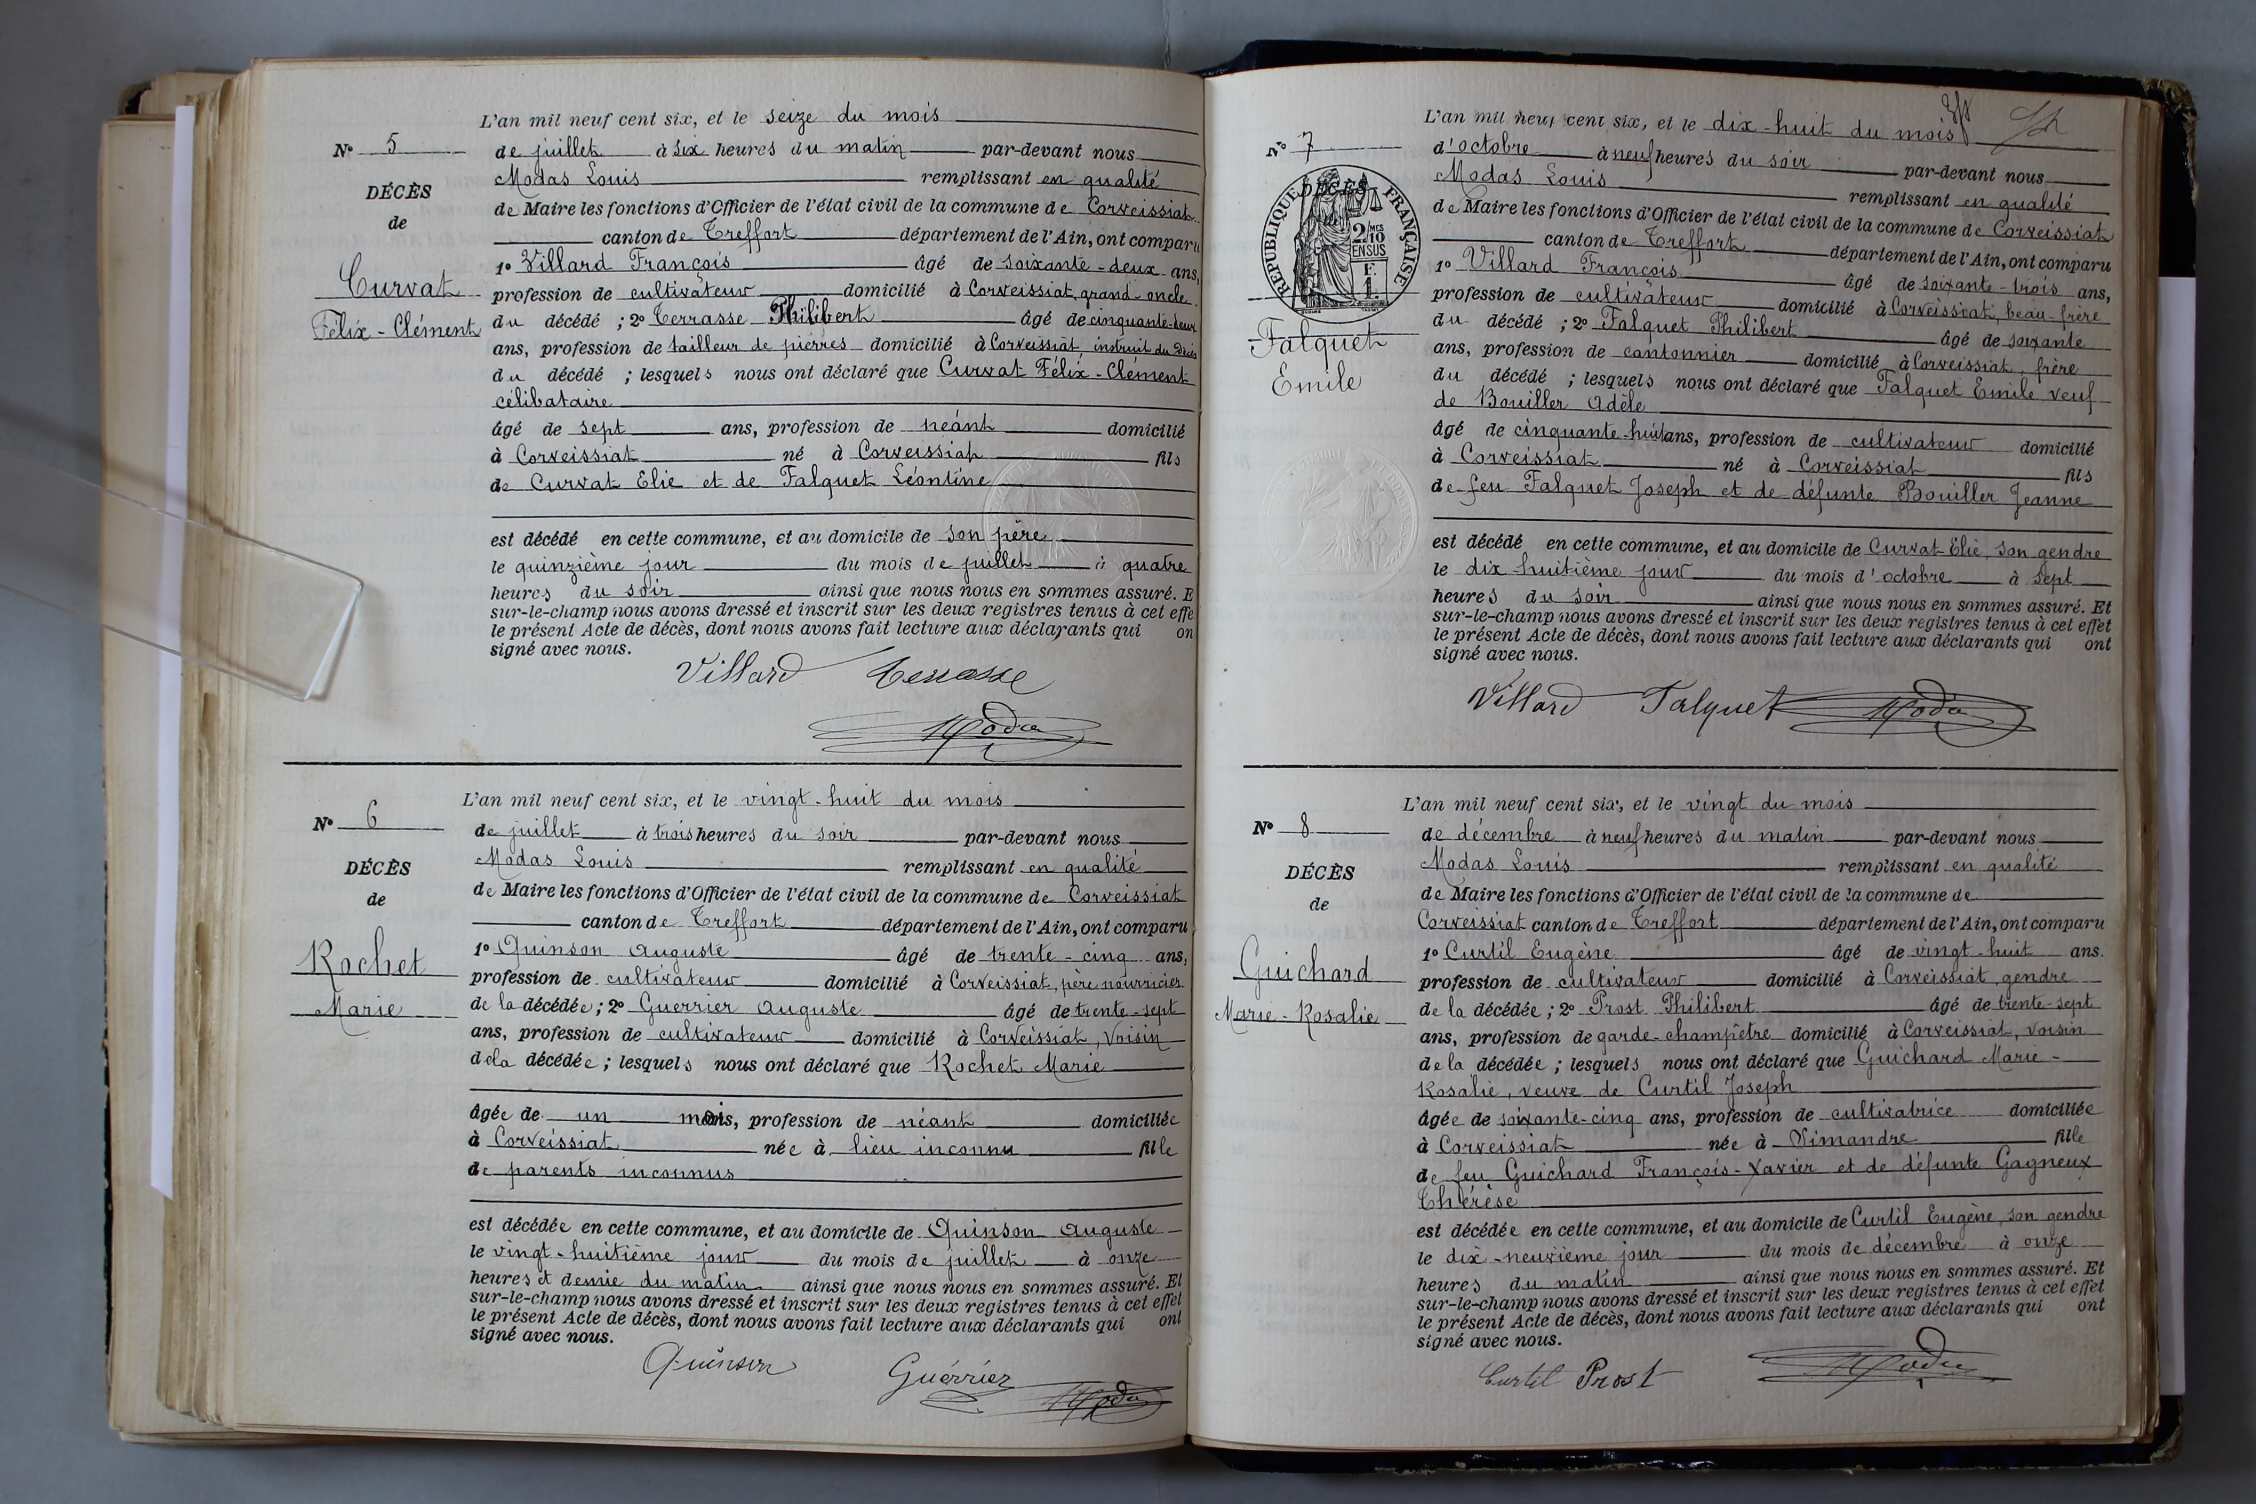 L'an mil neuf cent six, et le seize du mois
N° 5
de juillet à six heures du matin par-devant nous
DÉCÈS
Modas Louis remplissant en qualité
de
de Maire les fonctions d'Officier de l'état civil de la commune de Corveissiat
canton de Treffort département de l'Ain, ont comparu
Curvat
Félix-Clément
1° Villard François âgé de soixante-deux ans,
profession de cultivateur domicilié à Corveissiat, grand-oncle
du décédé ; 2° Terrasse Philibert âgé de cinquante-deux
ans, profession de tailleur de pierres domicilié à Corveissiat instruit du décès
du décédé ; lesquels nous ont déclaré que Curvat Félix-Clément
célibataire
âgé de sept ans, profession de néant domicilié
à Corveissiat né à Corveissiat fils
de Curvat Elie et de Falquet Léontine
est décédé en cette commune, et au domicile de son père
le quinzième jour du mois de juillet à quatre
heures du soir ainsi que nous nous en sommes assuré. E
sur-le-champ nous avons dressé et inscrit sur les deux registres tenus à cet effe
le présent Acte de décès, dont nous avons fait lecture aux déclarants qui on
signé avec nous.
Villard Terrasse
Modas
L'an mil neuf cent six, et le vingt-huit du mois
N° 6
de juillet à trois heures du soir par-devant nous
DÉCÈS
Modas Louis remplissant en qualité
de
de Maire les fonctions d'Officier de l'état civil de la commune de Corveissiat
canton de Treffort département de l'Ain, ont comparu
Rochet
Marie
1° Quinson Auguste âgé de trente-cinq ans,
profession de cultivateur domicilié à Corveissiat, père nourricier
de la décédée ; 2° Guerrier Auguste âgé de trente-sept
ans, profession de cultivateur domicilié à Corveissiat, voisin
de la décédée ; lesquels nous ont déclaré que Rochet Marie
âgée de un mois, profession de néant domiciliée
à Corveissiat née à lieu inconnu fille
de parents inconnus
est décédée en cette commune, et au domicile de Quinson Auguste
le vingt-huitième jour du mois de juillet à onze
heures et demie du matin ainsi que nous nous en sommes assuré. Et
sur-le-champ nous avons dressé et inscrit sur les deux registres tenus à cet effet
le présent Acte de décès, dont nous avons fait lecture aux déclarants qui ont
signé avec nous.
Quinson Guérrier Modas
L'an mil neuf cent six, et le dix-huit du mois
N° 7
d'octobre à neuf heures du soir par-devant nous
DÉCÈS
RÉPUBLIQUE FRANÇAISE
2/10 MES
EN SUS
F.
1.
Modas Louis remplissant en qualité
de Maire les fonctions d'Officier de l'état civil de la commune de Corveissiat
canton de Treffort département de l'Ain, ont comparu
Falquet
Emile
1° Villard François âgé de soixante-trois ans,
profession de cultivateur domicilié à Corveissiat, beau-frère
du décédé ; 2° Falquet Philibert âgé de soixante
ans, profession de cantonnier domicilié à Corveissiat, frère
du décédé ; lesquels nous ont déclaré que Falquet Emile veuf
de Bouiller Adèle
âgé de cinquante-huit ans, profession de cultivateur domicilié
à Corveissiat né à Corveissiat fils
de feu Falquet Joseph et de défunte Bouiller Jeanne
est décédé en cette commune, et au domicile de Curvat Elie, son gendre
le dix huitième jour du mois d'octobre à sept
heures du soir ainsi que nous nous en sommes assuré. Et
sur-le-champ nous avons dressé et inscrit sur les deux registres tenus à cet effet
le présent Acte de décès, dont nous avons fait lecture aux déclarants qui ont
signé avec nous.
Villard Falquet Modas
L'an mil neuf cent six, et le vingt du mois
N° 8
de décembre à neuf heures du matin par-devant nous
DÉCÈS
Modas Louis remplissant en qualité
de
de Maire les fonctions d'Officier de l'état civil de la commune de
Corveissiat canton de Treffort département de l'Ain, ont comparu
Guichard
Marie-Rosalie
1° Curtil Eugène âgé de vingt-huit ans.
profession de cultivateur domicilié à Corveissiat, gendre
de la décédée ; 2° Prost Philibert âgé de trente-sept
ans, profession de garde-champêtre domicilié à Corveissiat, voisin
de la décédée ; lesquels nous ont déclaré que Guichard Marie-
Rosalie, veuve de Curtil Joseph
âgée de soixante-cinq ans, profession de cultivatrice domiciliée
à Corveissiat née à Simandre fille
de feu Guichard François-Xavier et de défunte Gagneux
Thérèse
est décédée en cette commune, et au domicile de Curtil Eugène, son gendre
le dix-neuvième jour du mois de décembre à onze
heures du matin ainsi que nous nous en sommes assuré. Et
sur-le-champ nous avons dressé et inscrit sur les deux registres tenus à cet effet
le présent Acte de décès, dont nous avons fait lecture aux déclarants qui ont
signé avec nous.
Curtil Prost Modas